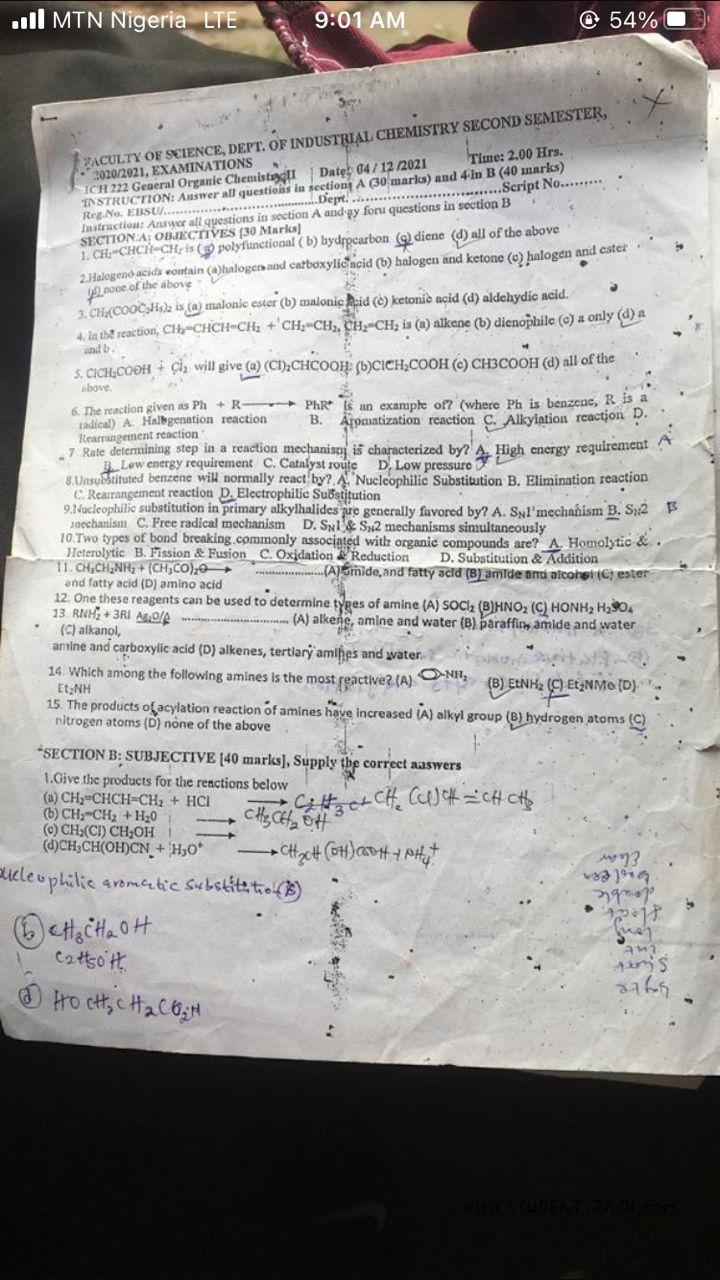 MTN Nigeria LTE 9:01 AM 54%
FACULTY OF SCIENCE, DEPT. OF INDUSTRIAL CHEMISTRY SECOND SEMESTER,
2020/2021, EXAMINATIONS
ICH 222 General Organic Chemistry II Date: 04 / 12 /2021 Time: 2.00 Hrs.
INSTRUCTION: Answer all questions in section A (30 marks) and 4 in B (40 marks)
Reg.No. EBSU/..................................Dept. ..............................Script No.........
Instruction: Answer all questions in section A and ay foru questions in section B
SECTION A: OBJECTIVES [30 Marks]
1. CH₂=CHCH=CH₂ is (a) polyfunctional ( b) hydrocarbon (c) diene (d) all of the above
2.Halogeno acids contain (a)halogen and carboxylic acid (b) halogen and ketone (c) halogen and ester
(d) none of the above
3. CH₂(COOC₂H₅)₂ is (a) malonic ester (b) malonic acid (c) ketonic acid (d) aldehydic acid.
4. In the reaction, CH₂=CHCH=CH₂ + CH₂=CH₂, CH₂=CH₂ is (a) alkene (b) dienophile (c) a only (d) a
and b.
5. ClCH₂COOH + Cl₂ will give (a) (Cl)₂CHCOOH (b)ClCH₂COOH (c) CH3COOH (d) all of the
above.
6. The reaction given as Ph + R → PhR is an example of? (where Ph is benzene, R is a
radical) A. Halogenation reaction B. Aromatization reaction C. Alkylation reaction D.
Rearrangement reaction
7 .Rate determining step in a reaction mechanism is characterized by? A. High energy requirement A
B. Low energy requirement C. Catalyst route D. Low pressure
8.Unsubstituted benzene will normally react by? A. Nucleophilic Substitution B. Elimination reaction
C. Rearrangement reaction D. Electrophilic Substitution
9.Nucleophilic substitution in primary alkylhalides are generally favored by? A. SN1 mechanism B. SN2 B
mechanism C. Free radical mechanism D. SN1 & SN2 mechanisms simultaneously
10.Two types of bond breaking commonly associated with organic compounds are? A. Homolytic &
Heterolytic B. Fission & Fusion C. Oxidation & Reduction D. Substitution & Addition
11. CH₃CH₂NH₂ + (CH₃CO)₂O → ....................(A)amide,and fatty acid (B) amide and alcohol (C) ester
and fatty acid (D) amino acid
12. One these reagents can be used to determine types of amine (A) SOCl₂ (B)HNO₂ (C) HONH₂ H₂SO₄
13. RNH₂ + 3RI Ag₂O/Δ .............................. (A) alkene, amine and water (B) paraffin, amide and water
(C) alkanol,
amine and carboxylic acid (D) alkenes, tertiary amines and water
14. Which among the following amines is the most reactive? (A) -NH₂ (B) EtNH₂ (C) Et₂NMe (D)
Et₂NH
15. The products of acylation reaction of amines have increased (A) alkyl group (B) hydrogen atoms (C)
nitrogen atoms (D) none of the above
SECTION B: SUBJECTIVE [40 marks], Supply the correct answers
1.Give the products for the reactions below
(a) CH₂=CHCH=CH₂ + HCl → CH₂(Cl)CH=CHCH₃
(b) CH₂=CH₂ + H₂0 → CH₃CH₂OH
(c) CH₂(Cl) CH₂OH →
(d)CH₃CH(OH)CN + H₃O⁺ → CH₃CH(OH)COOH + NH₄⁺
nucleophilic aromatic Substitution (B)
(b) CH₃CH₂OH
C₂H₅OH
(d) HO CH₂CH₂CO₂H
byte
Short
int
long
float
double
boolean
char